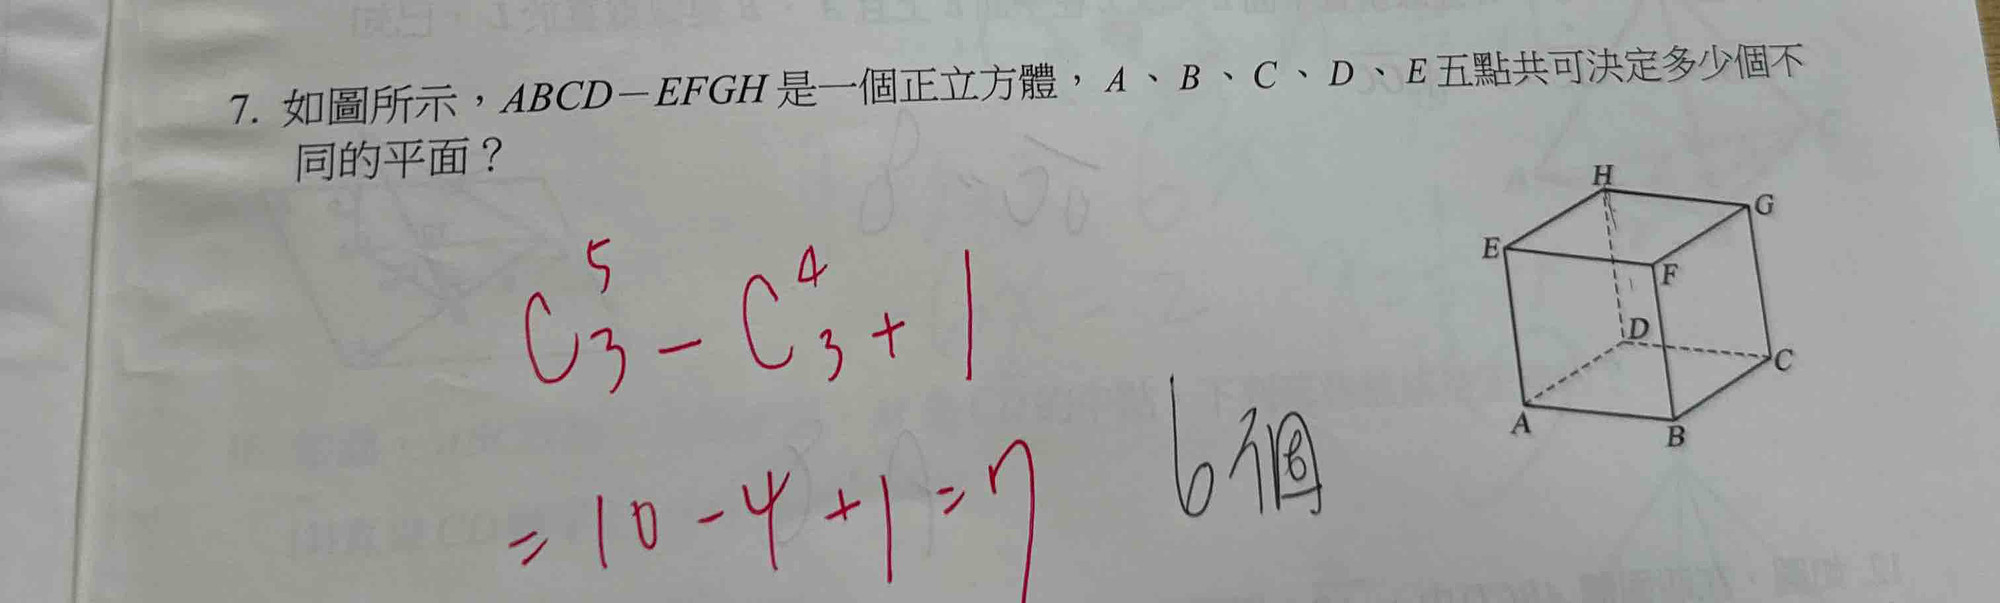 7. 如圖所示，ABCD－EFGH 是一個正立方體，A、B、C、D、E 五點共可決定多少個不
同的平面？
H
G
E
F
D
C
A
B
C⁵₃ - C⁴₃ + 1
= 10 - 4 + 1 = 7
6個